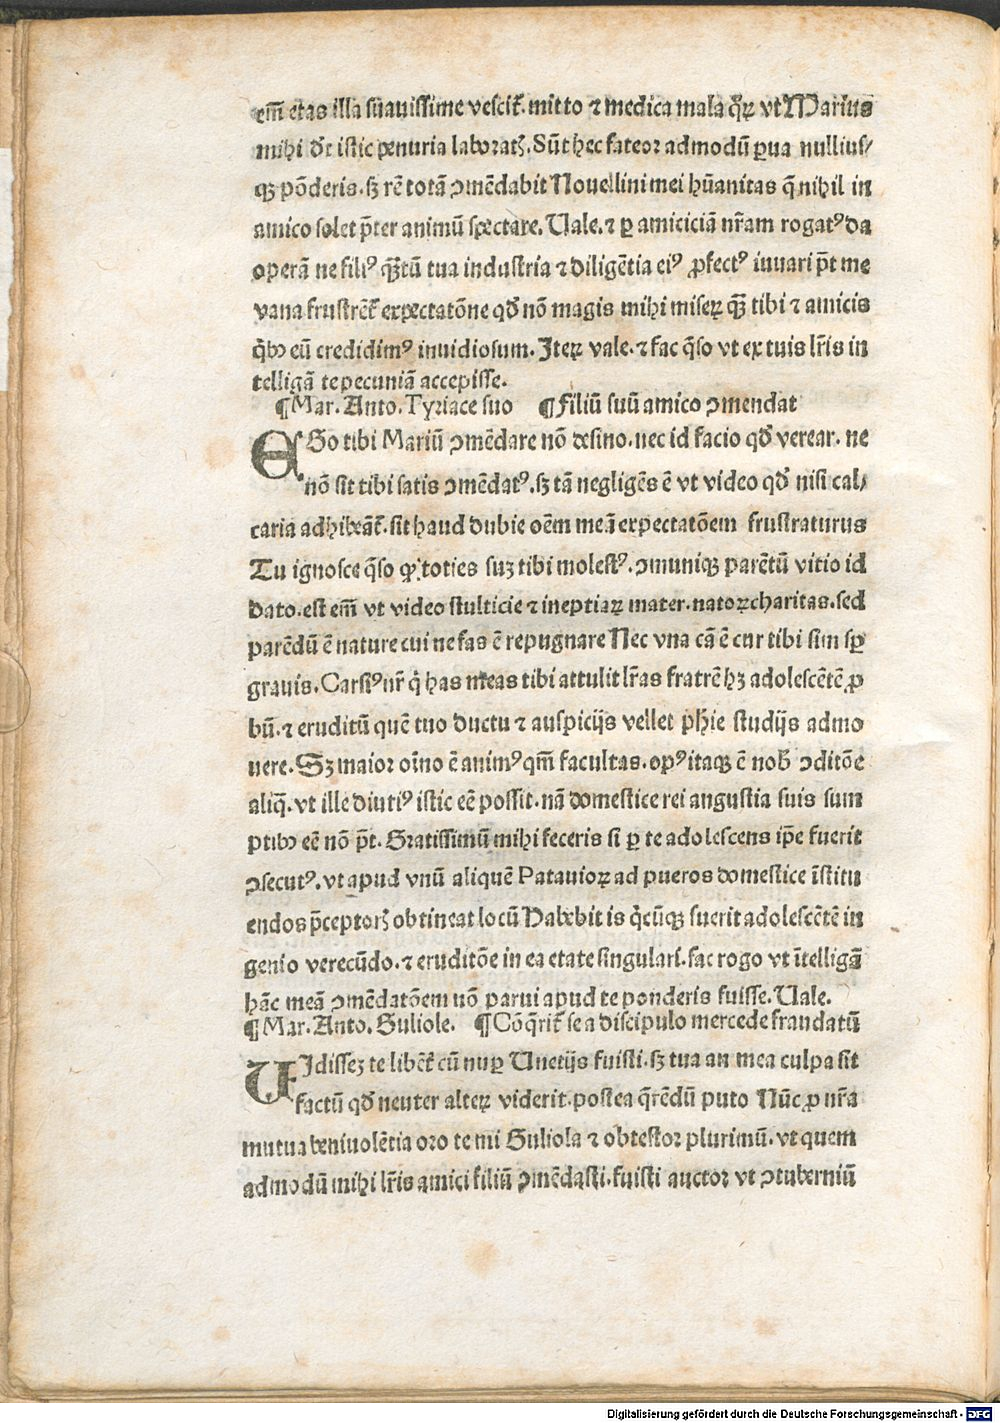 em̃ etas illa suauissime vescit᷑. mitto ⁊ medica mala q̃ꝝ vt Marius
mihi d̃t istic penuria laboratꝭ. Sũt hec fateor admodũ ꝑua nullius/
qꝫ põderis. sꝫ rẽ totã ꝯmẽdabit Nouellini mei hũanitas q̃ nihil in
amico solet p̃ter animũ spectare. Uale. ⁊ ꝑ amiciciã nr̃am rogatꝰ da
operã ne filiꝰ q̃tũ tua industria ⁊ diligẽtia eiꝰ ꝓfectꝰ iuuari p̃t me
vana frustrẽt᷑ expectatõne qđ nõ magis mihi miseꝝ q̃ꝫ tibi ⁊ amicis
q̃bꝰ eũ credidimꝰ inuidiosum. Iteꝝ vale. ⁊ fac q̃so vt ex tuis lr̃is in
telligã te pecuniã accepisse.
¶Mar. Anto. Tyriace suo ¶Filiũ suũ amico ꝯmendat
EGo tibi Mariũ ꝯmẽdare nõ desino. nec id facio qđ verear. ne
nõ sit tibi satis ꝯmẽdatꝰ. sꝫ tã negligẽs ẽ vt video qđ nisi cal/
caria adhibeãt᷑. sit haud dubie oẽm meã expectatõem frustraturus
Tu ignosce q̃so ꝙ toties suꝫ tibi molestꝰ. ꝯmuniqꝫ parẽtũ vitio id
dato. est em̃ vt video stulticie ⁊ ineptiaꝝ mater. natoꝝ charitas. sed
parẽdũ ẽ nature cui nefas ẽ repugnare Nec vna cã ẽ cur tibi sim sꝑ
grauis. Carsiꝰ nr̃ q̃ has meas tibi attulit lr̃as fratrẽ hꝫ adolescẽtẽ ꝓ
bũ. ⁊ eruditũ quẽ tuo ductu ⁊ auspicijs vellet ph̃ie studijs admo
uere. Sꝫ maior oĩno ẽ animꝰ qm̃ facultas. opꝰ itaqꝫ ẽ nob̃ ꝯditõe
aliq̃. vt ille diutiꝰ istic eẽ possit. nã domestice rei angustia suis sum
ptibꝰ eẽ nõ p̃t. Gratissimũ mihi feceris si ꝑ te adolescens ip̃e fuerit
ꝯsecutꝰ. vt apud vnũ aliquẽ Patauioꝝ ad pueros domestice ĩstitu
endos p̃ceptorꝭ obtineat locũ Habebit is q̃cũqꝫ fuerit adolescẽtẽ in
genio verecũdo. ⁊ eruditõe in ea etate singulari. fac rogo vt ĩtelligã
hãc meã ꝯmẽdatõem nõ parui apud te ponderis fuisse. Uale.
¶Mar. Anto. Guliole. ¶Cõq̃rit᷑ se a discipulo mercede fraudatũ
UIdisseꝫ te libẽt᷑ cũ nuꝑ Uenetijs fuisti. sꝫ tua an mea culpa sit
factũ qđ neuter alteꝝ viderit. postea q̃rẽdũ puto Nũc ꝓ nr̃a
mutua beniuolẽtia oro te mi Guliola ⁊ obtestor plurimũ. vt quem
admodũ mihi lr̃is amici filiũ ꝯmẽdasti. fuisti auctor vt ꝯtuberniũ
Digitalisierung gefördert durch die Deutsche Forschungsgemeinschaft - DFG